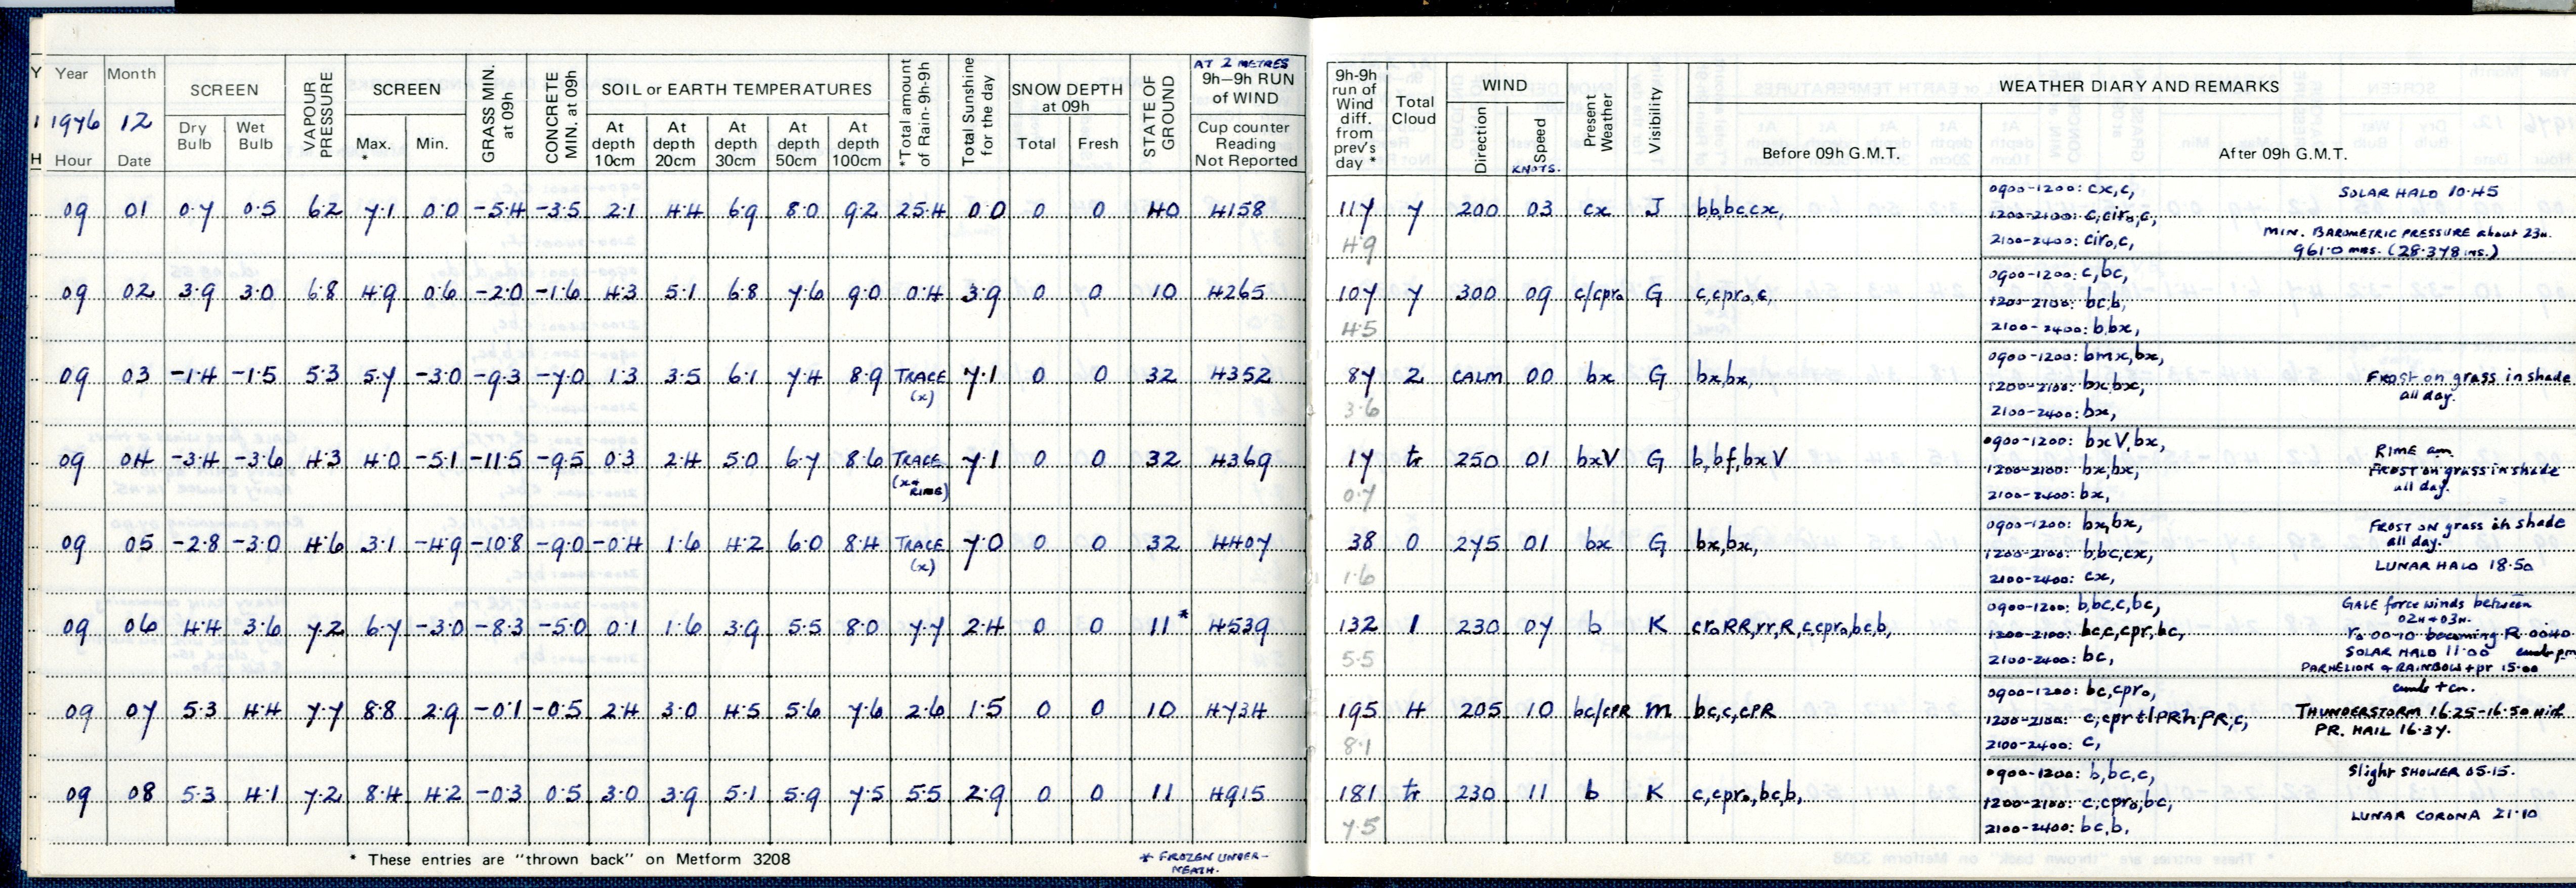 Y Year Month SCREEN VAPOUR PRESSURE SCREEN GRASS MIN. at 09h CONCRETE MIN. at 09h SOIL or EARTH TEMPERATURES *Total amount of Rain-9h-9h Total Sunshine for the day SNOW DEPTH at 09h STATE OF GROUND AT 2 METRES 9h–9h RUN of WIND 9h-9h run of Wind diff. from prev's day * Total Cloud WIND Present Weather Visibility WEATHER DIARY AND REMARKS
1 1976 12
H Hour Date Dry Bulb Wet Bulb Max. * Min. At depth 10cm At depth 20cm At depth 30cm At depth 50cm At depth 100cm Total Fresh Cup counter Reading Not Reported Direction Speed KNOTS. Before 09h G.M.T. After 09h G.M.T.
09 01 0.7 0.5 6.2 7.1 0.0 -5.4 -3.5 2.1 4.4 6.9 8.0 9.2 25.4 0.0 0 0 40 4158 117 7 200 03 cx J bb,bc,cx,
4.9
0900-1200: cx,c, SOLAR HALO 10.45
1200-2100: c,cir₀,c, MIN. BAROMETRIC PRESSURE about 23H.
2100-2400: cir₀,c, 961.0 mbs. (28.378 INS.)
09 02 3.9 3.0 6.8 4.9 0.6 -2.0 -1.6 4.3 5.1 6.8 7.6 9.0 0.4 3.9 0 0 10 4265 107 7 300 09 c/cpr₀ G c,cpr₀,c,
4.5
0900-1200: c,bc,
1200-2100: bc,b,
2100-2400: b,bx,
09 03 -1.4 -1.5 5.3 5.7 -3.0 -9.3 -7.0 1.3 3.5 6.1 7.4 8.9 TRACE (x) 7.1 0 0 32 4352 87 2 CALM 00 bx G bx,bx,
3.6
0900-1200: bmx,bx,
1200-2100: bx,bx, FROST on grass in shade
2100-2400: bx, all day.
09 04 -3.4 -3.6 4.3 4.0 -5.1 -11.5 -9.5 0.3 2.4 5.0 6.7 8.6 TRACE (x+ RIME) 7.1 0 0 32 4369 17 tr 250 01 bxV G b,bf,bxV
0.7
0900-1200: bxV,bx, RIME am.
1200-2100: bx,bx, FROST on grass in shade
2100-2400: bx, all day.
09 05 -2.8 -3.0 4.6 3.1 -4.9 -10.8 -9.0 -0.4 1.6 4.2 6.0 8.4 TRACE (x) 7.0 0 0 32 4407 38 0 275 01 bx G bx,bx,
1.6
0900-1200: bx,bx, FROST ON grass in shade all day.
1200-2100: b,bc,cx, LUNAR HALO 18.50
2100-2400: cx,
09 06 4.4 3.6 7.2 6.7 -3.0 -8.3 -5.0 0.1 1.6 3.9 5.5 8.0 7.7 2.4 0 0 11* 4539 132 1 230 07 b K cr₀RR,rr,R,c,cpr₀,bc,b,
5.5
0900-1200: b,bc,c,bc, GALE force winds between 02H+03H.
1200-2100: bc,c,cpr,bc, r₀ 00-10 becoming R 0040.
2100-2400: bc, SOLAR HALO 11.00 cumb pm
PARHELION & RAINBOW + pr 15.00
09 07 5.3 4.4 7.7 8.8 2.9 -0.1 -0.5 2.4 3.0 4.5 5.6 7.6 2.6 1.5 0 0 10 4734 195 4 205 10 bc/cPR M bc,c,cPR
8.1
0900-1200: bc,cpr₀, cumb + cn.
1200-2100: c,cprtlPRhPR,c, THUNDERSTORM 16.25-16.50
2100-2400: c, PR. HAIL 16.37.
09 08 5.3 4.1 7.2 8.4 4.2 -0.3 0.5 3.0 3.9 5.1 5.9 7.5 5.5 2.9 0 0 11 4915 181 tr 230 11 b K c,cpr₀,bc,b,
7.5
0900-1200: b,bc,c, Slight SHOWER 05.15.
1200-2100: c,cpr₀,bc, LUNAR CORONA 21.10
2100-2400: bc,b,
* These entries are "thrown back" on Metform 3208
* FROZEN UNDER-
NEATH.